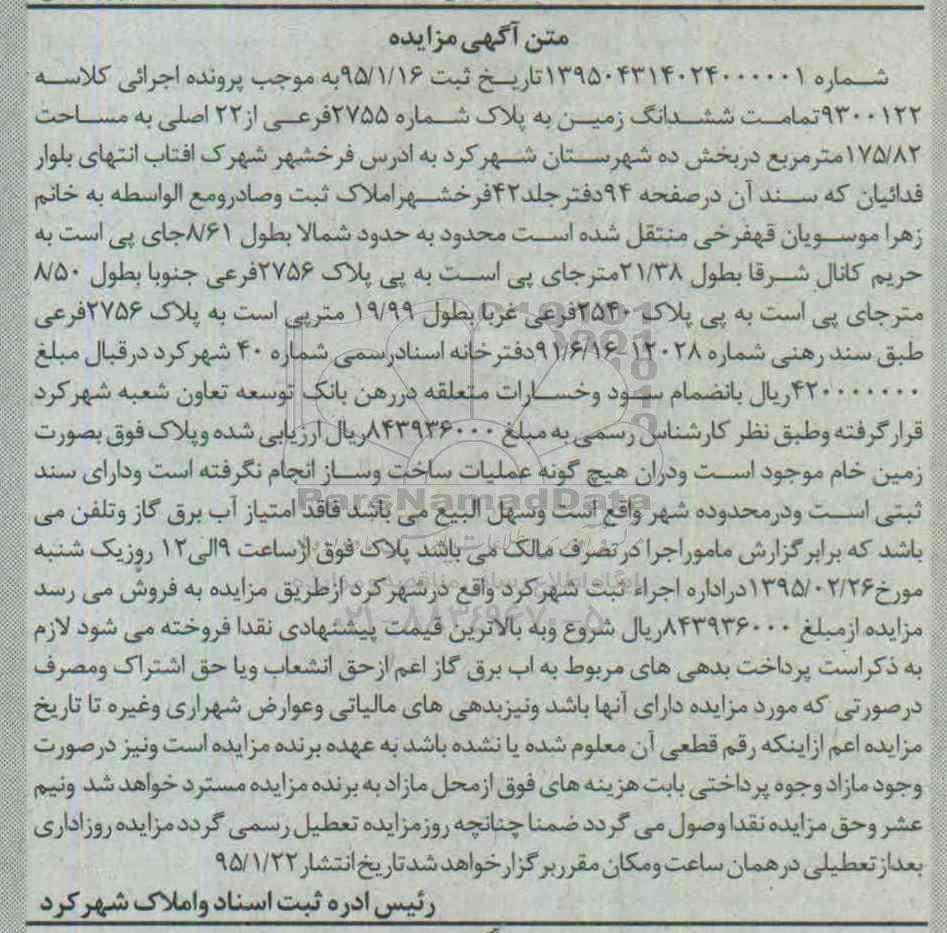 متن آگهی مزایده
شماره ۱۳۹۵۰۴۳۱۴۰۲۴۰۰۰۰۰۱تاریخ ثبت ۹۵/۱/۱۶به موجب پرونده اجرائی کلاسه
۹۳۰۰۱۲۲تمامت ششدانگ زمین به پلاک شماره ۲۷۵۵فرعی از۲۲ اصلی به مساحت
۱۷۵/۸۲مترمربع دربخش ده شهرستان شهرکرد به ادرس فرخشهر شهرک افتاب انتهای بلوار
فدائیان که سند آن درصفحه ۹۴دفترجلد۴۲فرخشهراملاک ثبت وصادرومع الواسطه به خانم
زهرا موسویان قهفرخی منتقل شده است محدود به حدود شمالا بطول ۸/۶۱جای پی است به
حریم کانال شرقا بطول ۲۱/۳۸مترجای پی است به پی پلاک ۲۷۵۶فرعی جنوبا بطول ۸/۵۰
مترجای پی است به پی پلاک ۲۵۴۰فرعی غربا بطول ۱۹/۹۹ مترپی است به پلاک ۲۷۵۶فرعی
طبق سند رهنی شماره ۱۲۰۲۸-۹۱/۶/۱۶دفترخانه اسنادرسمی شماره ۴۰ شهرکرد درقبال مبلغ
۴۲۰۰۰۰۰۰۰ریال بانضمام سود وخسارات متعلقه دررهن بانک توسعه تعاون شعبه شهرکرد
قرارگرفته وطبق نظر کارشناس رسمی به مبلغ ۸۴۳۹۳۶۰۰۰ریال ارزیابی شده وپلاک فوق بصورت
زمین خام موجود است ودران هیچ گونه عملیات ساخت وساز انجام نگرفته است ودارای سند
ثبتی است ودرمحدوده شهر واقع است وسهل البیع می باشد فاقد امتیاز آب برق گاز وتلفن می
باشد که برابرگزارش ماموراجرا در تصرف مالک می باشد پلاک فوق ازساعت ۹الی۱۲ روزیک شنبه
مورخ۱۳۹۵/۰۲/۲۶دراداره اجراء ثبت شهرکرد واقع درشهرکرد ازطریق مزایده به فروش می رسد
مزایده ازمبلغ ۸۴۳۹۳۶۰۰۰ریال شروع وبه بالاترین قیمت پیشنهادی نقدا فروخته می شود لازم
به ذکراست پرداخت بدهی های مربوط به اب برق گاز اعم ازحق انشعاب ویا حق اشتراک ومصرف
درصورتی که مورد مزایده دارای آنها باشد ونیزبدهی های مالیاتی وعوارض شهراری وغیره تا تاریخ
مزایده اعم ازاینکه رقم قطعی آن معلوم شده یا نشده باشد به عهده برنده مزایده است ونیز درصورت
وجود مازاد وجوه پرداختی بابت هزینه های فوق ازمحل مازاد به برنده مزایده مسترد خواهد شد ونیم
عشر وحق مزایده نقدا وصول می گردد ضمنا چنانچه روزمزایده تعطیل رسمی گردد مزایده روزاداری
بعدازتعطیلی درهمان ساعت ومکان مقرربرگزارخواهد شدتاریخ انتشار۹۵/۱/۲۲
رئیس ادره ثبت اسناد واملاک شهرکرد
ParsNamadData
۰۲۱-۸۸۳۴۹۶۷۰-۵